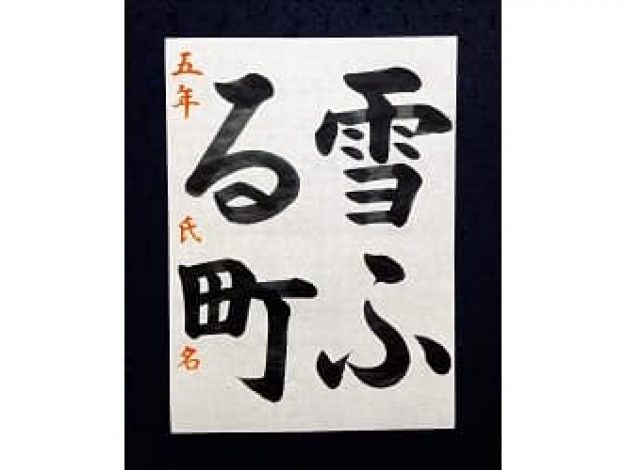 雪ふ
る町
五年 氏名